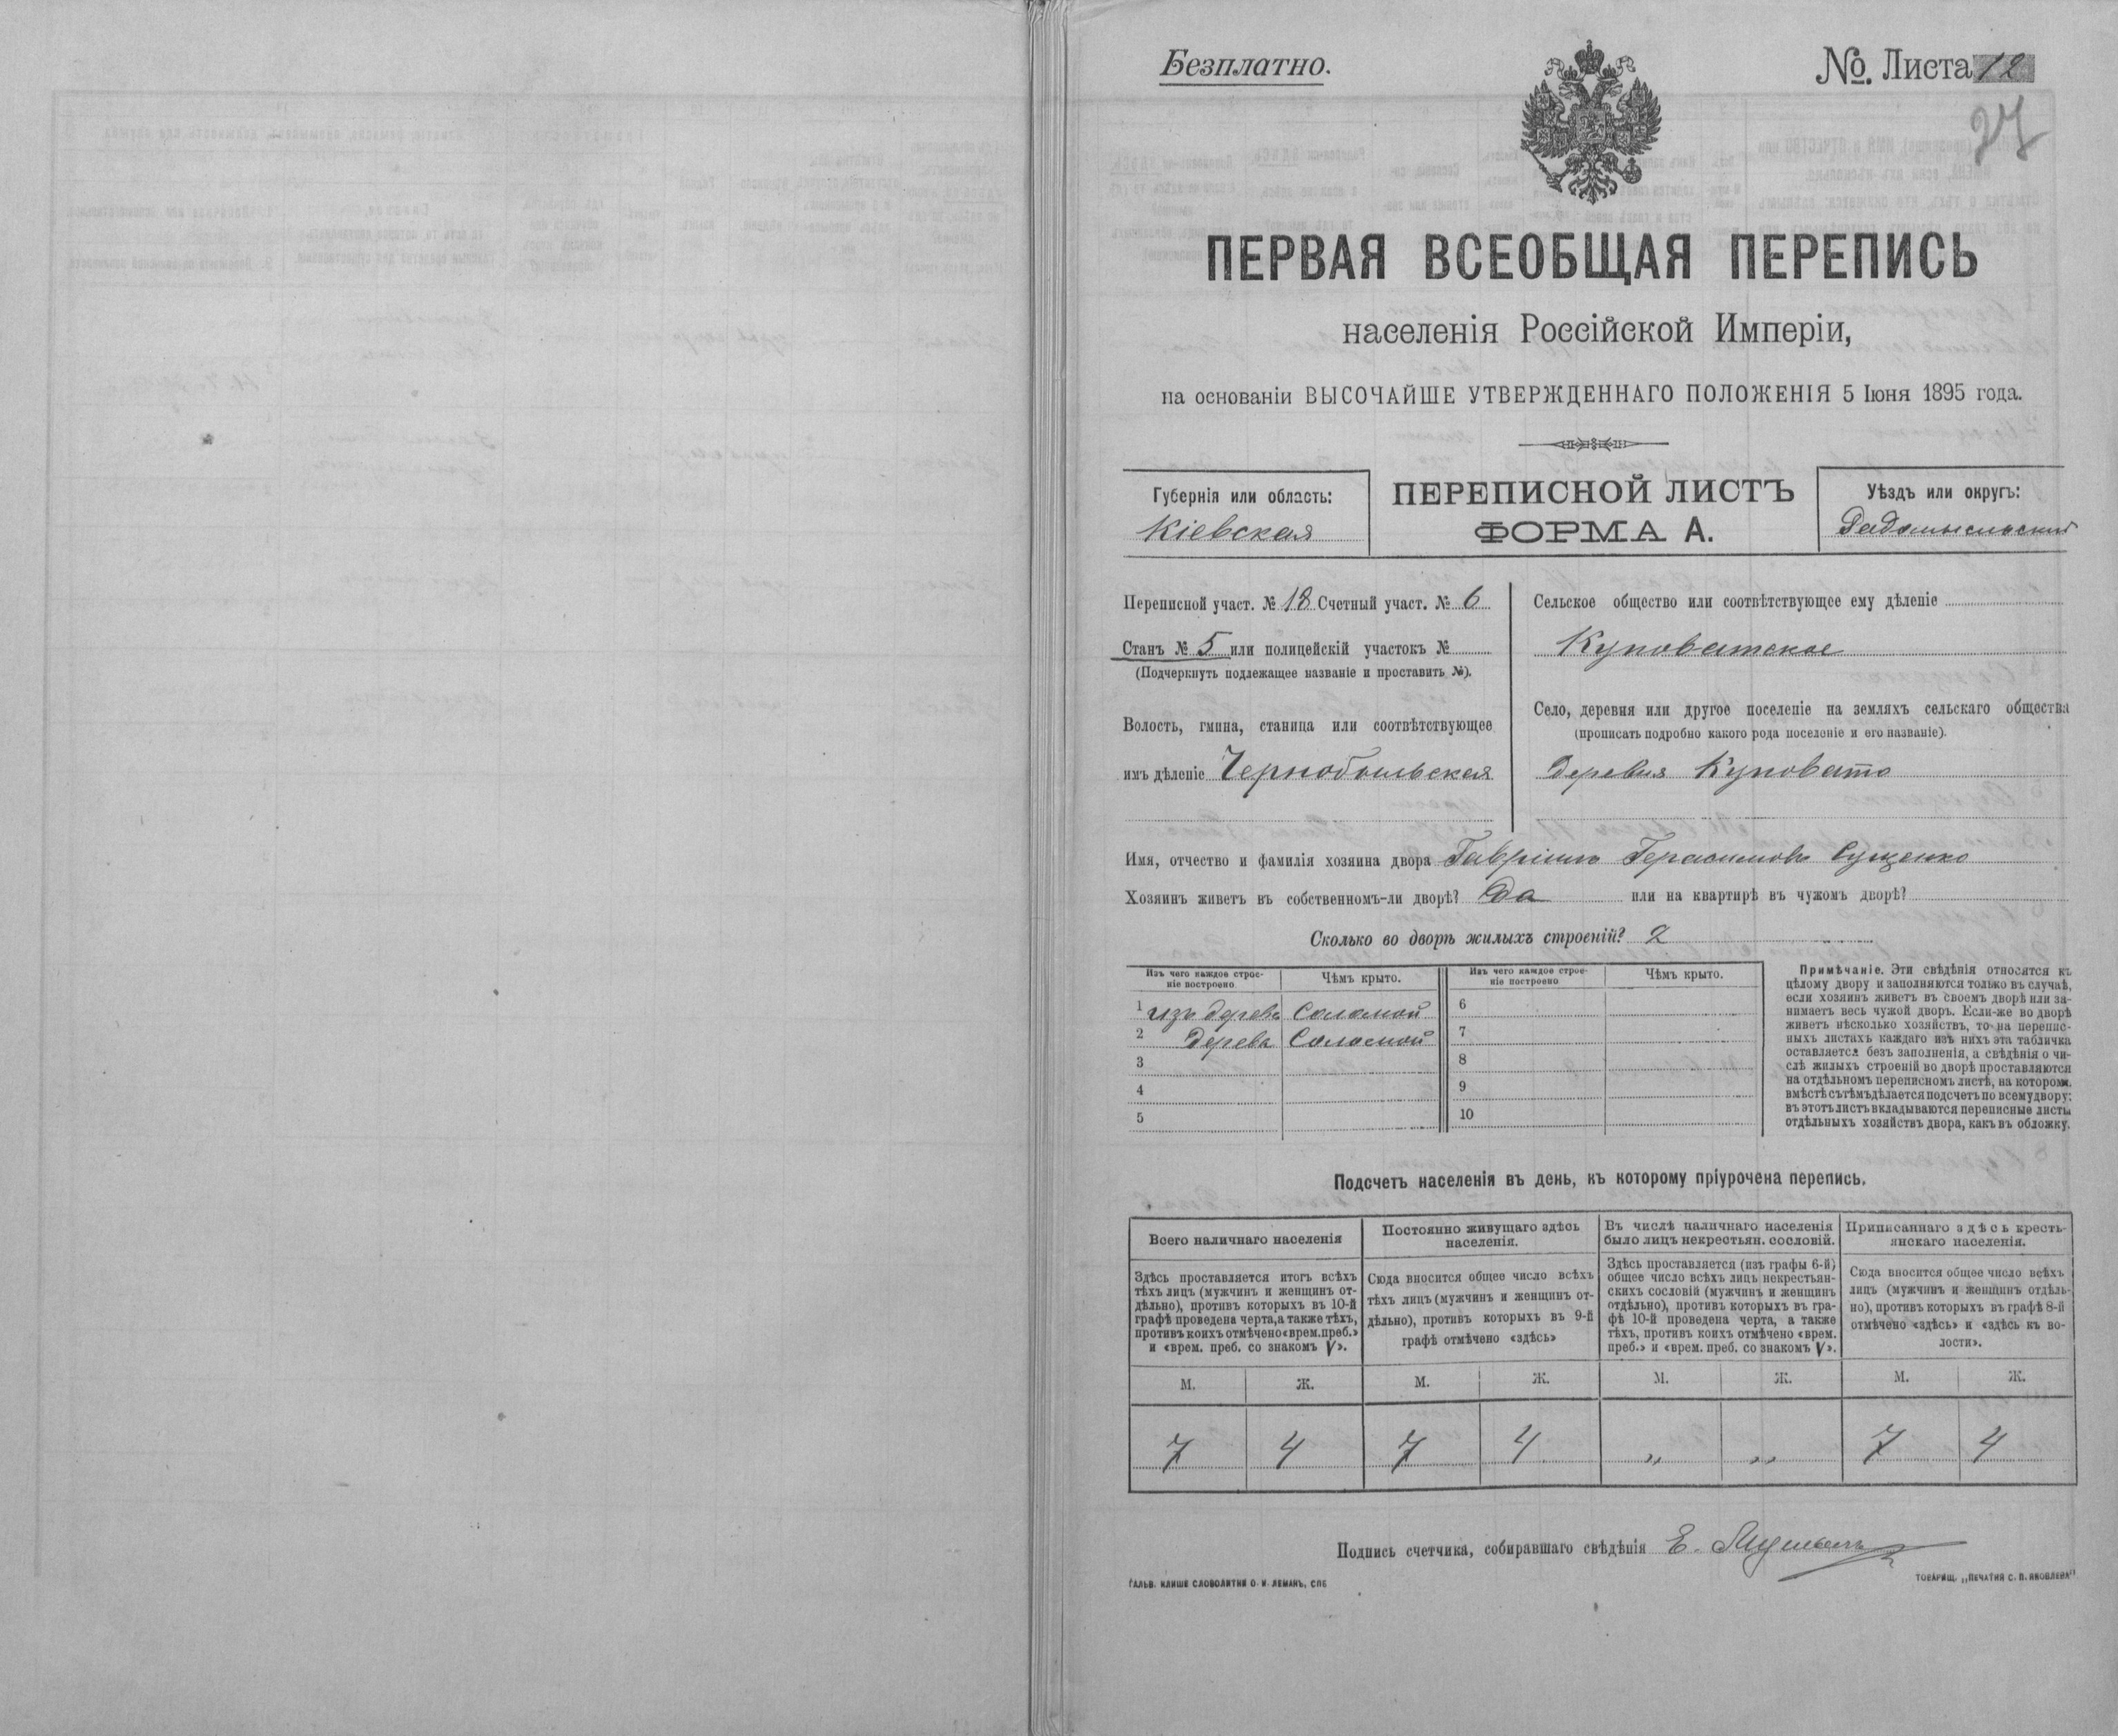 Безплатно.
№ Листа 12
27
ПЕРВАЯ ВСЕОБЩАЯ ПЕРЕПИСЬ
населенія Россійской Имперіи,
на основаніи ВЫСОЧАЙШЕ УТВЕРЖДЕННАГО ПОЛОЖЕНІЯ 5 Іюня 1895 года.
Губернія или область:
Кіевская
ПЕРЕПИСНОЙ ЛИСТЪ
ФОРМА А.
Уѣздъ или округъ:
Радомысльскій
Переписной участ. № 18 Счетный участ. № 6
Станъ № 5 или полицейскій участокъ №
(Подчеркнуть подлежащее названіе и проставить №).
Волость, гмина, станица или соотвѣтствующее
имъ дѣленіе Чернобыльская
Сельское общество или соотвѣтствующее ему дѣленіе
Куповатское
Село, деревня или другое поселеніе на земляхъ сельскаго общества
(прописать подробно какого рода поселеніе и его названіе).
деревня Куповато
Имя, отчество и фамилія хозяина двора Гавріилъ Герасимовъ Сущенко
Хозяинъ живетъ въ собственномъ-ли дворѣ? Да или на квартирѣ въ чужомъ дворѣ?
Сколько во дворѣ жилыхъ строеній? 2
Изъ чего каждое строе-
ніе построено
Чѣмъ крыто.
Изъ чего каждое строе-
ніе построено
Чѣмъ крыто.
1 изъ дерева Соломой
2 дерева Соломой
3
4
5
6
7
8
9
10
Примѣчаніе. Эти свѣдѣнія относятся къ
цѣлому двору и заполняются только въ случаѣ,
если хозяинъ живетъ въ своемъ дворѣ или за-
нимаетъ весь чужой дворъ. Если-же во дворѣ
живетъ нѣсколько хозяйствъ, то на перепис-
ныхъ листахъ каждаго изъ нихъ эта табличка
оставляется безъ заполненія, а свѣдѣнія о чи-
слѣ жилыхъ строеній во дворѣ проставляются
на отдѣльномъ переписномъ листѣ, на которомъ
вмѣстѣ съ тѣмъ дѣлается подсчетъ по всему двору;
въ этотъ листъ вкладываются переписные листы
отдѣльныхъ хозяйствъ двора, какъ въ обложку.
Подсчетъ населенія въ день, къ которому пріурочена перепись.
Всего наличнаго населенія
Здѣсь проставляется итогъ всѣхъ
тѣхъ лицъ (мужчинъ и женщинъ от-
дѣльно), противъ которыхъ въ 10-й
графѣ проведена черта, а также тѣхъ,
противъ коихъ отмѣчено «врем. преб.»
и «врем. преб. со знакомъ V».
Постоянно живущаго здѣсь
населенія.
Сюда вносится общее число всѣхъ
тѣхъ лицъ (мужчинъ и женщинъ от-
дѣльно), противъ которыхъ въ 9-й
графѣ отмѣчено «здѣсь»
Въ числѣ наличнаго населенія
было лицъ некрестьян. сословій.
Здѣсь проставляется (изъ графы 6-й)
общее число всѣхъ лицъ некрестьян-
скихъ сословій (мужчинъ и женщинъ
отдѣльно), противъ которыхъ въ гра-
фѣ 10-й проведена черта, а также
тѣхъ, противъ коихъ отмѣчено «врем.
преб.» и «врем. преб. со знакомъ V».
Приписаннаго здѣсь кресть-
янскаго населенія.
Сюда вносится общее число всѣхъ
лицъ (мужчинъ и женщинъ отдѣль-
но), противъ которыхъ въ графѣ 8-й
отмѣчено «здѣсь» и «здѣсь къ во-
лости».
М. Ж. М. Ж. М. Ж. М. Ж.
7 4 7 4 „ „ 7 4
Подпись счетчика, собиравшаго свѣдѣнія Е.
ГАЛЬВ. КЛИШЕ СЛОВОЛИТНИ О. И. ЛЕМАНЪ, СПБ
ТОВАРИЩ. „ПЕЧАТНЯ С. П. ЯКОВЛЕВА"